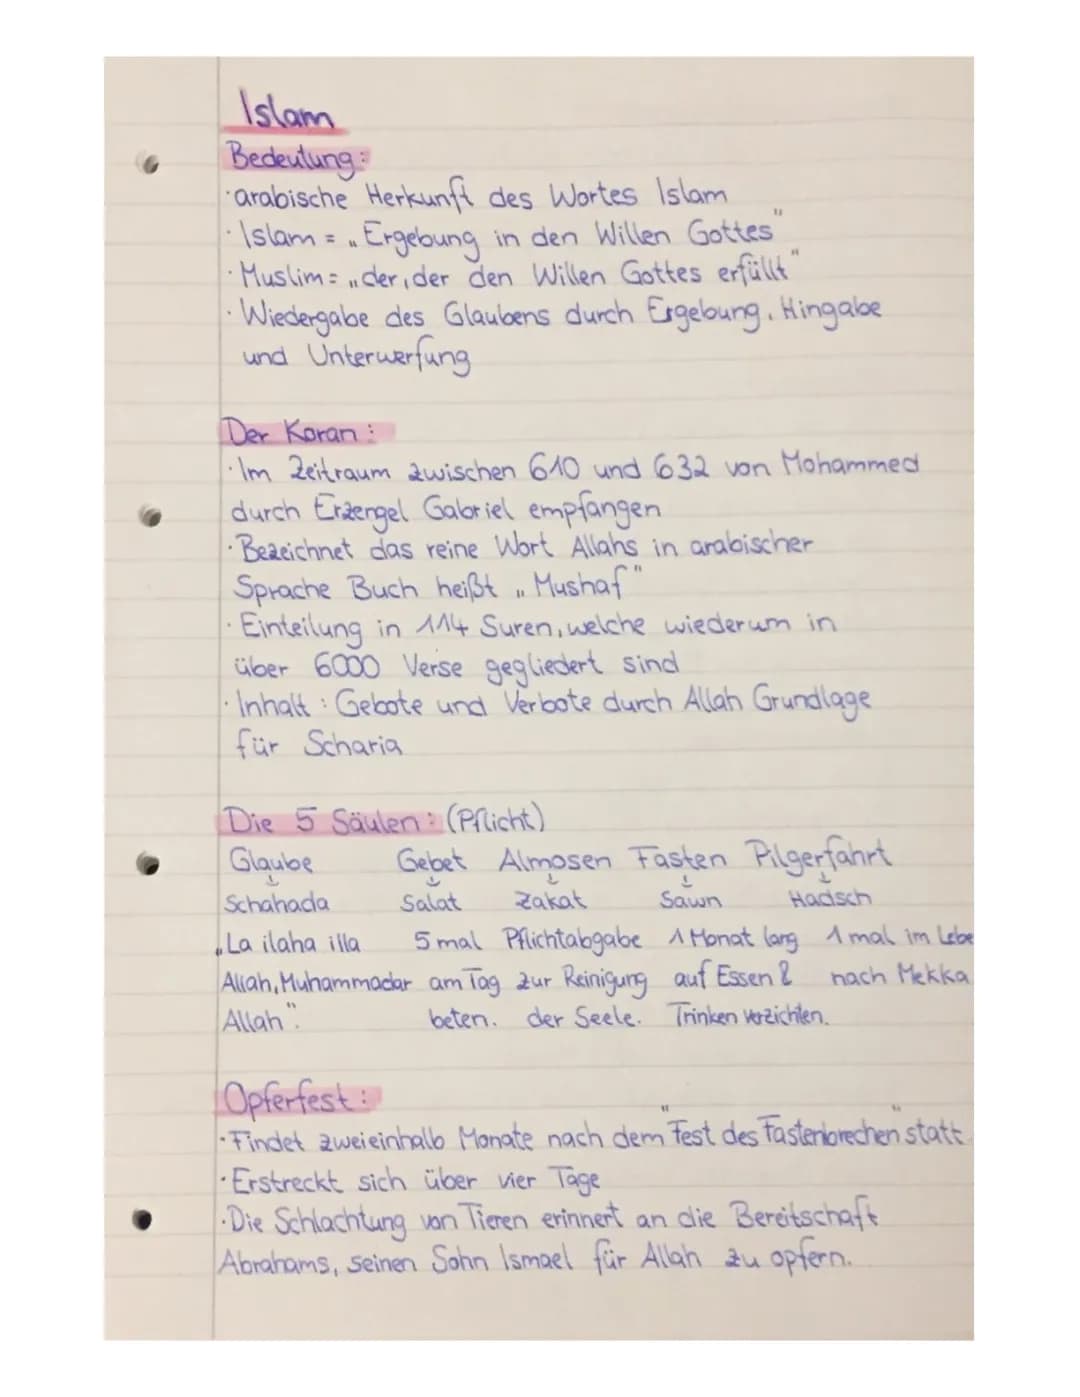 Islam
Bedeutung:
·arabische Herkunft des Wortes Islam
·Islam = „Ergebung in den Willen Gottes"
·Muslim= „der, der den Willen Gottes erfüllt"
·Wiedergabe des Glaubens durch Ergebung, Hingabe
und Unterwerfung
Der Koran:
·Im Zeitraum zwischen 610 und 632 von Mohammed
durch Erzengel Gabriel empfangen
·Bezeichnet das reine Wort Allahs in arabischer
Sprache Buch heißt „Mushaf"
·Einteilung in 114 Suren, welche wiederum in
über 6000 Verse gegliedert sind
·Inhalt: Gebote und Verbote durch Allah Grundlage
für Scharia
Die 5 Säulen: (Pflicht)
Glaube Gebet Almosen Fasten Pilgerfahrt
↓ ↓ ↓ ↓ ↓
Schahada Salat Zakat Sawn Hadsch
„La ilaha illa 5 mal Pflichtabgabe 1 Monat lang 1 mal im Lebe
Allah, Muhammadar am Tag zur Reinigung auf Essen & nach Mekka
Allah". beten. der Seele. Trinken verzichten.
Opferfest:
·Findet zweieinhalb Monate nach dem "Fest des Fastenbrechen" statt
·Erstreckt sich über vier Tage
·Die Schlachtung von Tieren erinnert an die Bereitschaft
Abrahams, seinen Sohn Ismael für Allah zu opfern.